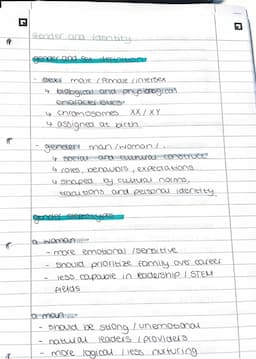 gender and identity
gender and sex definitions
- sex: male / female / intersex
↳ biological and physiological
characteristics
↳ chromosomes XX / XY
↳ assigned at birth
- gender: man / woman / .
↳ social and cultural construct
↳ roles, behaviours, expectations
↳ shaped by cultural norms,
traditions and personal identity
gender stereotypes
a woman
- more emotional / sensitive
- should prioritize family over career
- less capable in leadership / STEM
fields
a man
- should be strong / unemotional
- natural leaders / providers
- more logical / less nurturing